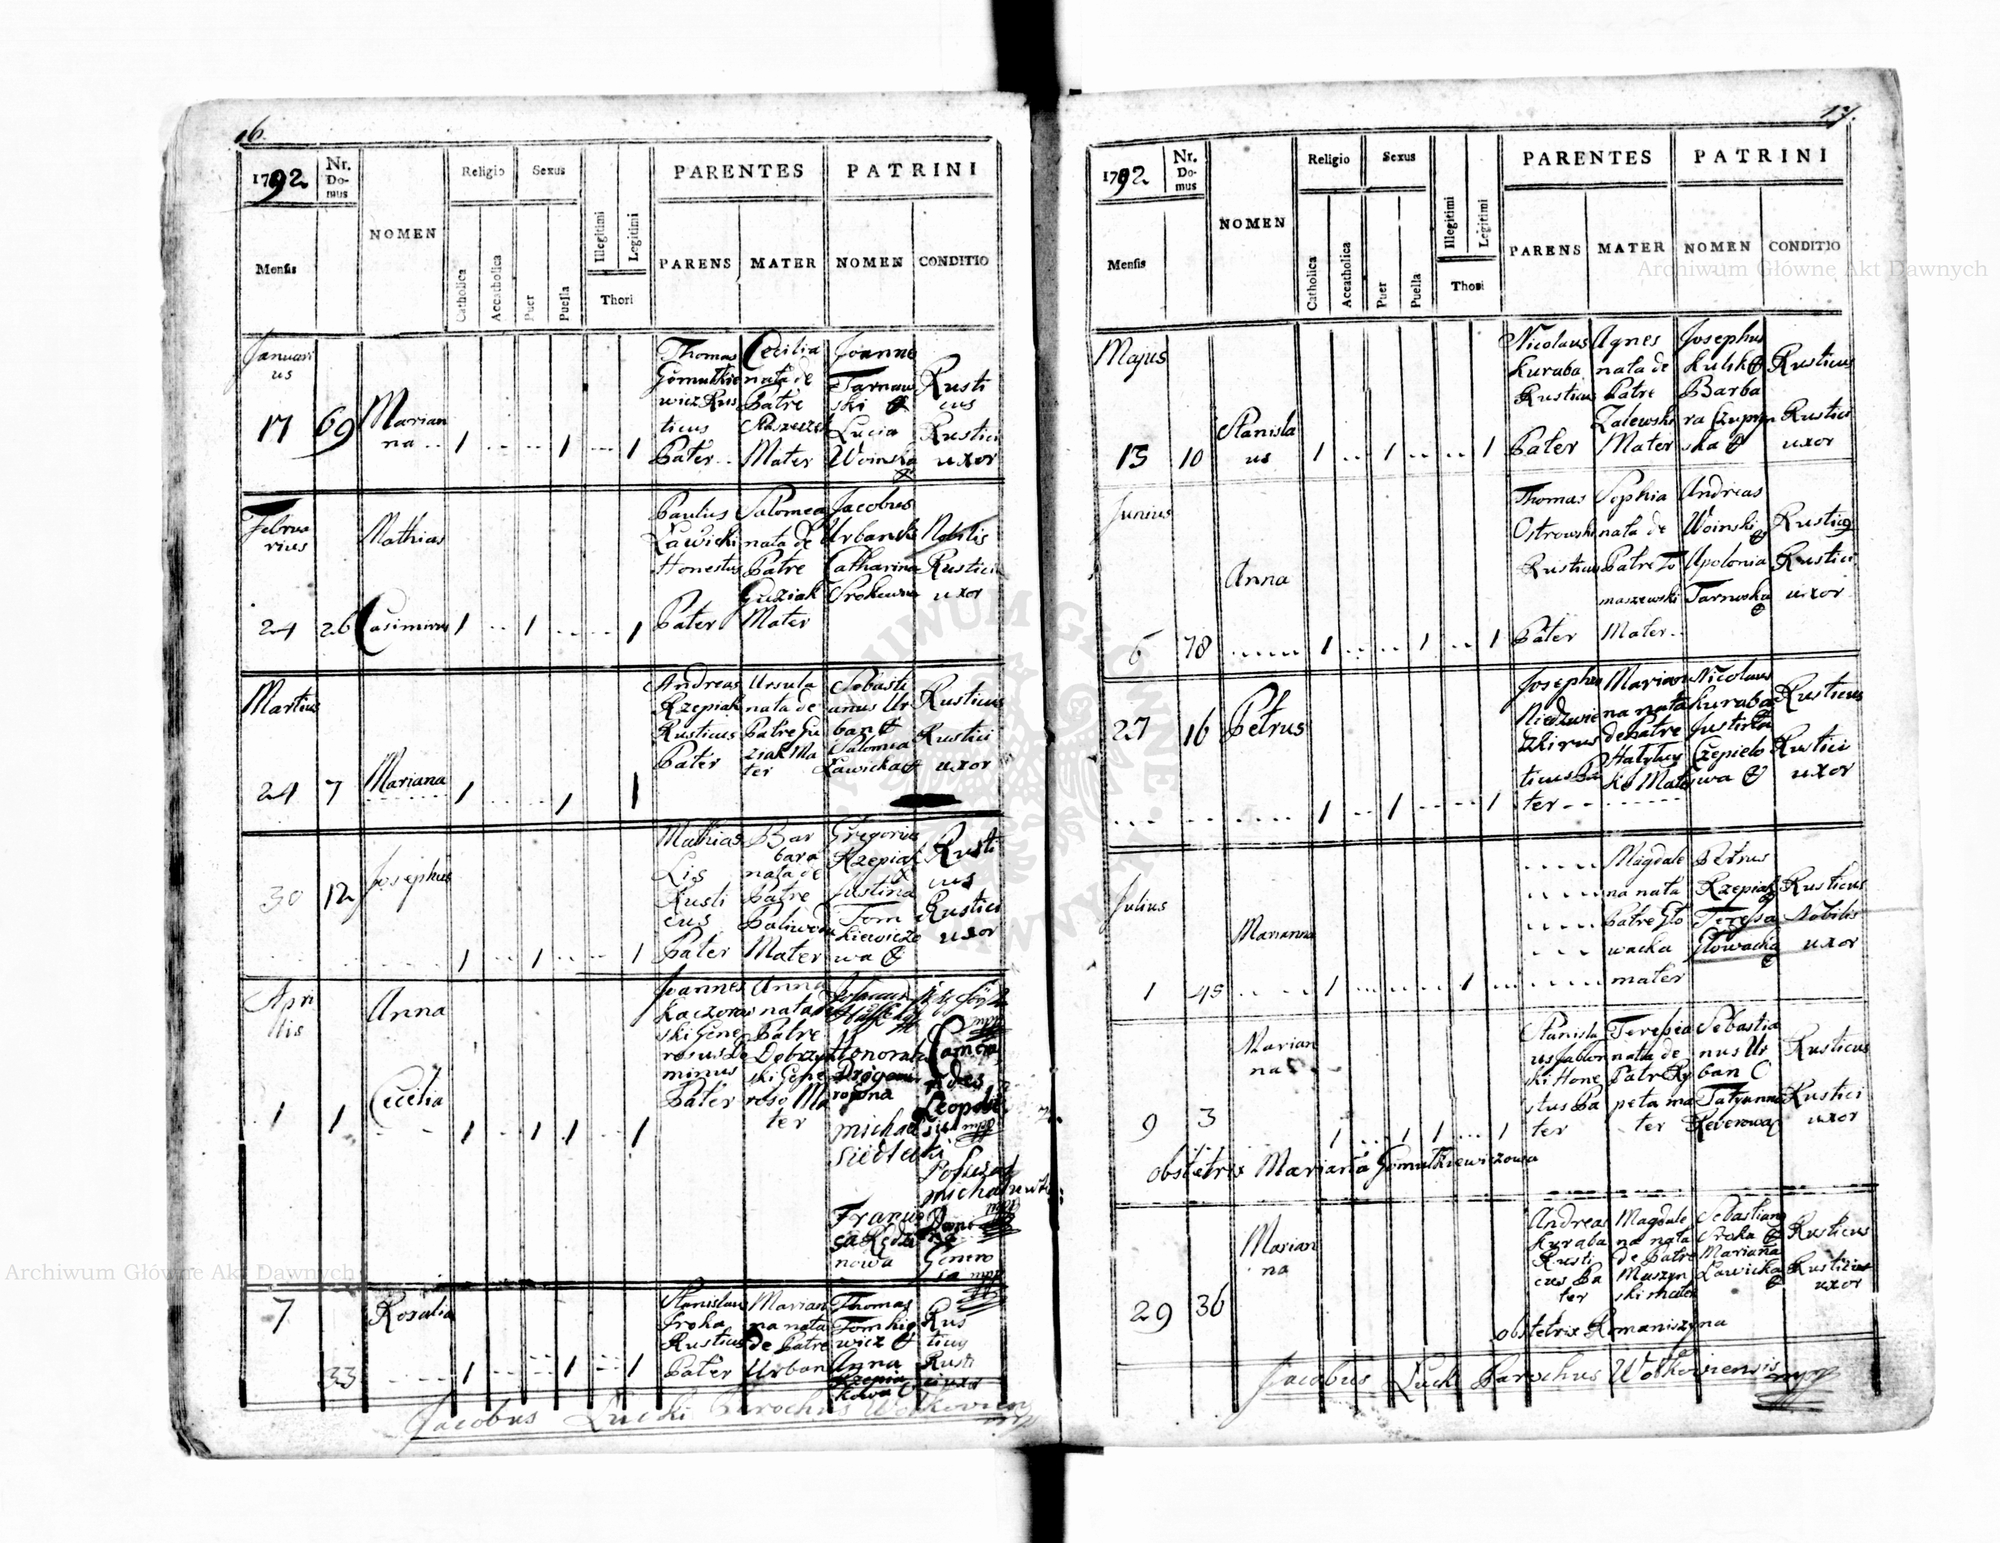 16.
1792
Nr. Domus
NOMEN
Religio
Sexus
PARENTES
PATRINI
Mensis
Catholica
Accatholica
Puer
Puella
Illegitimi
Legitimi
Thori
PARENS
MATER
NOMEN
CONDITIO
Januari
us
17 69 Marian
na .. 1 1 1
Thomas
Gomułkie
wicz Rus
ticus
Pater
Cecilia
nata de
Patre
Mater
Joanne
Tarnaw
ski
Lucia
Woinska
Rusti
cus
Rustici
uxor
Februa
rius
24 26
Mathias
Casimirus 1 1 1
Paulus
Lawicki
Honestus
Pater
Salomea
nata de
Patre
Guziak
Mater
Jacobus
Urbanski
Catharina
Srokowna
Nobilis
Rustici
uxor
Martius
24 7 Mariana 1 1 1
Andreas
Rzepiak
Rusticus
Pater
Ursula
nata de
Patre Gu
ziak Ma
ter
Sebasti
anus Ur
ban &
Salomea
Lawicka
Rusticus
Rustici
uxor
30 12 Josephus 1 1 1
Mathias
Lis
Rusti
cus
Pater
Bar
bara
nata de
Patre
Mater
Gregorius
Rzepiak
Justina
Tom
kiewiczo
wa
Rusti
cus
Rustici
uxor
Apri
llis
1 1
Anna
Cecilia
1 1 1 1
Joannes
Kaczorow
ski Gene
rosus Do
minus
Pater
Anna
nata de
Patre
Dobrzyn
ski Gene
roso Ma
ter
Honorata
michał
Siedlecki
mpp
7 33 Rosalia 1 1 1
Stanislaus
Sroka
Rusticus
Pater
Marian
na nata
de Patre
Urban
Thomas
Tomkie
wicz &
Anna
Rzepia
kowa
Rus
ticus
Rusti
ci uxor
Jacobus Lucki Parochus Wołkovien
17.
1792
Nr. Domus
NOMEN
Religio
Sexus
PARENTES
PATRINI
Mensis
Catholica
Accatholica
Puer
Puella
Illegitimi
Legitimi
Thori
PARENS
MATER
NOMEN
CONDITIO
Majus
13 10 Stanisla
us 1 1 1
Nicolaus
Kuraba
Rusticus
Pater
Agnes
nata de
Patre
Zalewski
Mater
Josephus
Kulsk
Barba
ra Czupryn
ska
Rusticus
Rustici
uxor
Junius
6 78 Anna 1 1 1
Thomas
Ostrowski
Rusticus
Pater
Sophia
nata de
Patre To
maszewski
Mater
Andreas
Woinski
Apolonia
Tarnwska
Rusticus
Rustici
uxor
27 16 Petrus 1 1 1
Josephus
Niedzwie
dzki rus
ticus Pa
ter
Marian
na nata
de Patre
Mater
Nicolaus
Kuraba
Justina
Czepielo
wa
Rusticus
Rustici
uxor
Julius
1 45 Marianna 1 1
Magdale
na nata
Patre Gło
wacka
mater
Petrus
Rzepiak
Teressa
Głowacka
Rusticus
Nobilis
uxor
9 3 Marian
na 1 1 1 1
Stanisla
us Jablon
ski Hone
stus Pa
ter
Teresia
nata de
Patre Rze
peta ma
ter
Sebastia
nus Ur
ban
Tatyanna
Rusticus
Rustici
uxor
obstetrix Mariana Gomułkiewiczowa
29 36 Marian
na
Andreas
Kuraba
Rusti
cus Pa
ter
Magdale
na nata
de Patre
Muszyn
ski mater
Sebastianus
Sroka
Mariana
Lawicka
Rusticus
Rustici
uxor
obstetrix Romaniszyna
Jacobus Lucki Parochus Wołkoviensis
mpp
Archiwum Główne Akt Dawnych
Archiwum Główne Akt Dawnych
ARCHIWUM GŁÓWNE AKT DAWNYCH